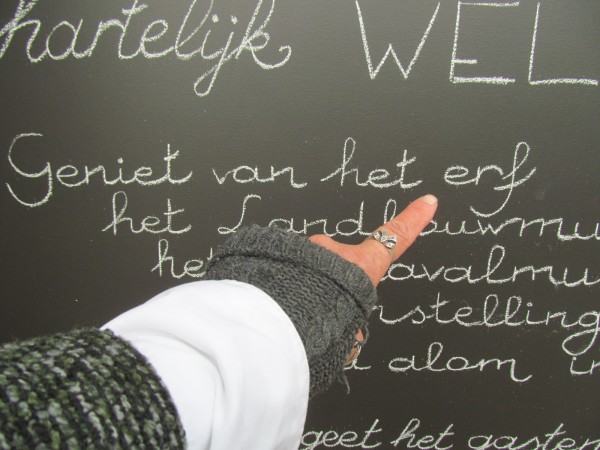 hartelijk WEL
Geniet van het erf
het Landbouwmu
he avalmu
rstelling
a alom in
geet het gasten